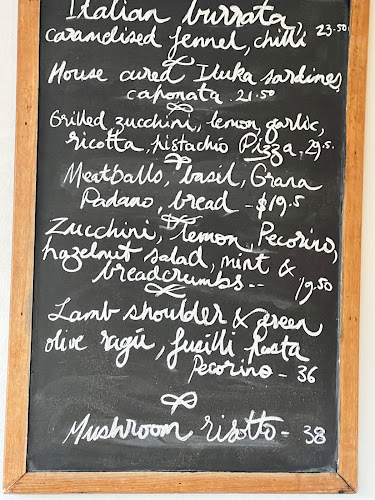 Italian burrata,
caramelised fennel, chilli 23.50
House cured Iluka sardines,
caponata. 21.50
Grilled zucchini, lemon, garlic,
ricotta, pistachio Pizza. 29.5
Meatballs, basil, Grana
Padano, bread - $19.5
Zucchini, lemon, Pecorino,
hazelnut salad, mint &
breadcrumbs-- 19.50
Lamb shoulder & green
olive ragù, fusilli Pasta
Pecorino - 36
Mushroom risotto - 38